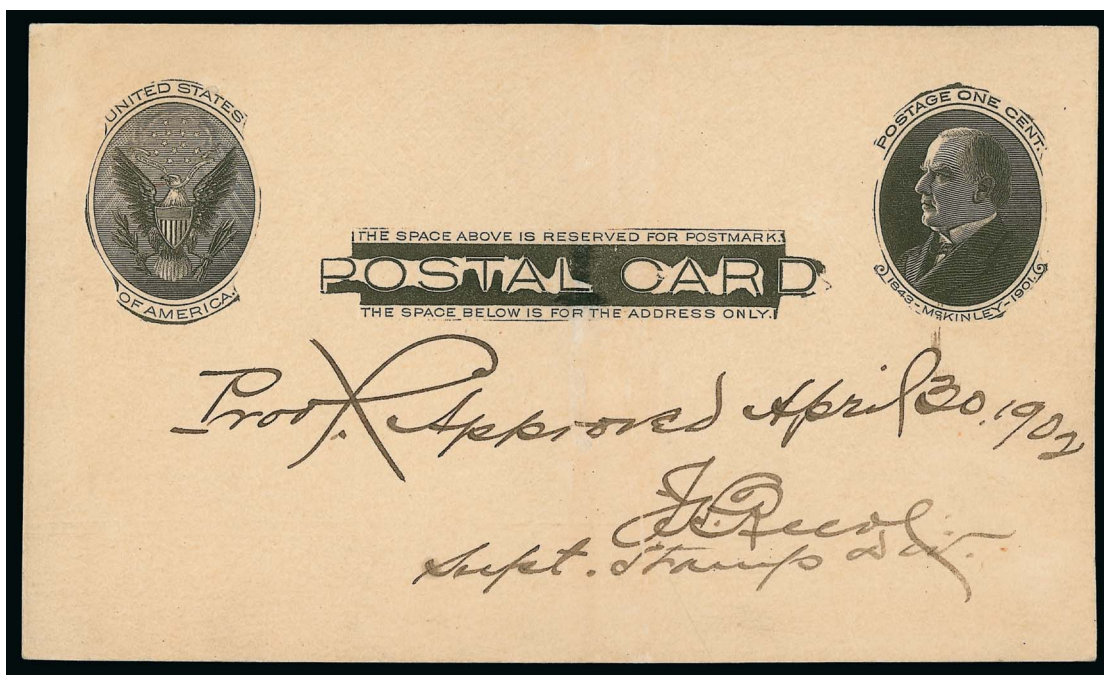 UNITED STATES
OF AMERICA.
POSTAGE ONE CENT.
1843-McKINLEY-1901.
THE SPACE ABOVE IS RESERVED FOR POSTMARK.
POSTAL CARD
THE SPACE BELOW IS FOR THE ADDRESS ONLY.
Proof. Approved April 30, 1902
Supt. Stamp Div.